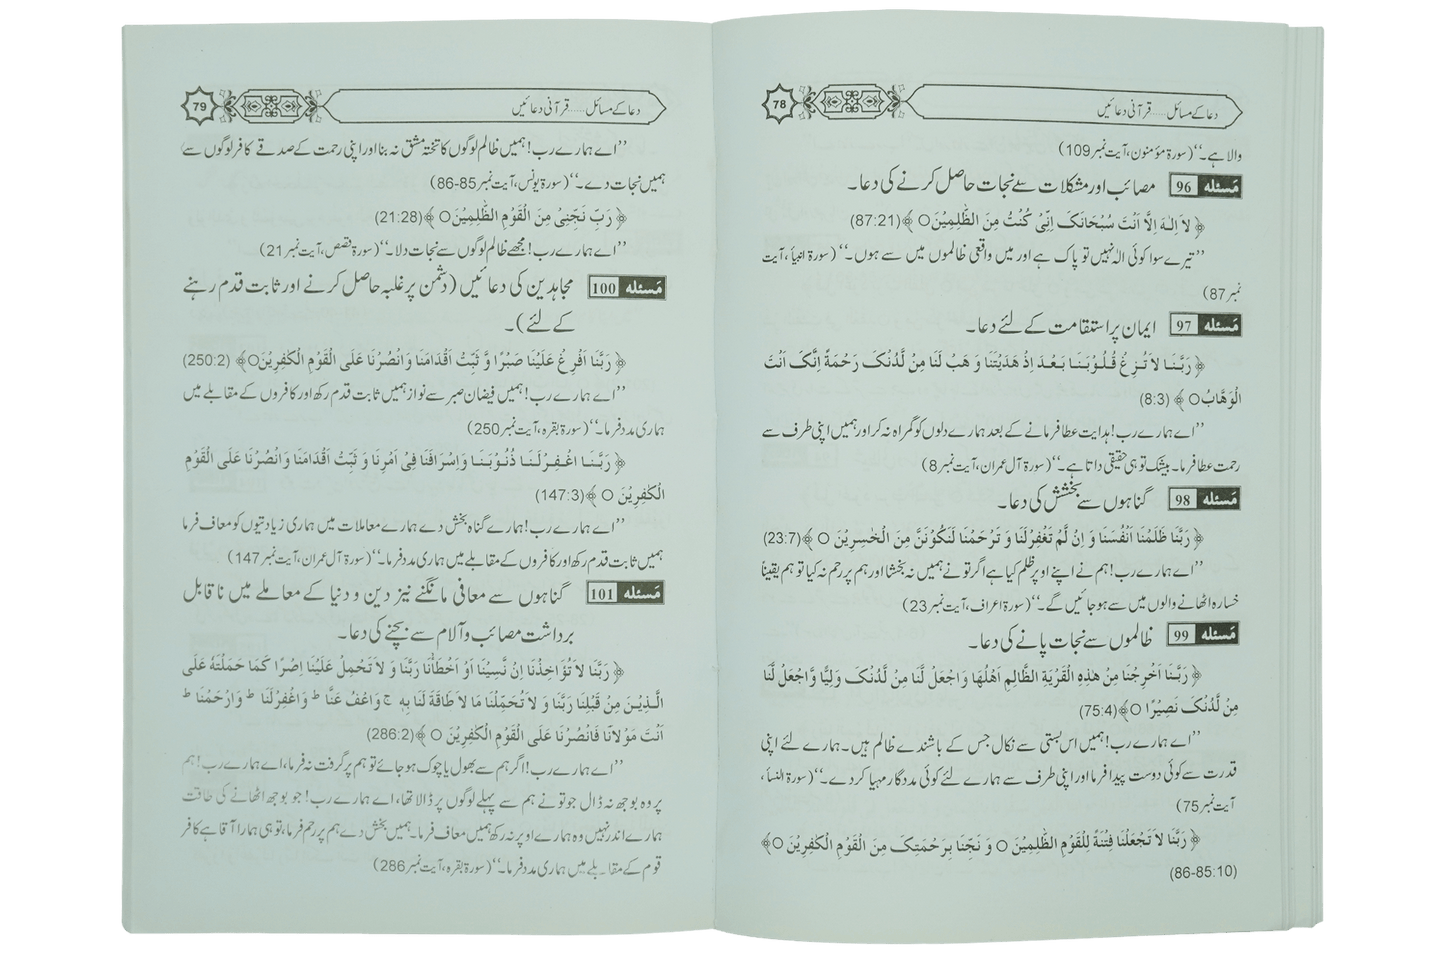 78
دعا کے مسائل ..... قرآنی دعائیں
والا ہے۔‘‘ (سورۃ مؤمنون، آیت نمبر 109)
مَسئلہ 96 مصائب اور مشکلات سے نجات حاصل کرنے کی دعا۔
﴿ لاَ اِلٰـہَ اِلَّا اَنْتَ سُبْحَانَکَ اِنِّیْ کُنْتُ مِنَ الظّٰلِمِیْنَ○ ﴾(87:21)
’’تیرے سوا کوئی الٰہ نہیں تو پاک ہے اور میں واقعی ظالموں میں سے ہوں۔‘‘ (سورۃ انبیاء، آیت
نمبر 87)
مَسئلہ 97 ایمان پر استقامت کے لئے دعا۔
﴿ رَبَّنَـا لاَ تُـزِغْ قُـلُـوْبَـنَـا بَـعْـدَ اِذْ هَدَيْتَنَا وَ هَبْ لَنَا مِنْ لَّدُنْکَ رَحْمَةً اِنَّکَ اَنْتَ
الْوَهَّابُ○ ﴾ (8:3)
’’اے ہمارے رب! ہدایت عطا فرمانے کے بعد ہمارے دلوں کو گمراہ نہ کر اور ہمیں اپنی طرف سے
رحمت عطا فرما۔ بیشک تو ہی حقیقی داتا ہے۔‘‘ (سورۃ آل عمران، آیت نمبر 8)
مَسئلہ 98 گناہوں سے بخشش کی دعا۔
﴿ رَبَّنَا ظَلَمْنَا اَنْفُسَنَا وَ اِنْ لَّمْ تَغْفِرْلَنَا وَ تَرْحَمْنَا لَنَکُوْنَنَّ مِنَ الْخٰسِرِيْنَ ○ ﴾(23:7)
’’اے ہمارے رب! ہم نے اپنے اوپر ظلم کیا ہے اگر تو نے ہمیں نہ بخشا اور ہم پر رحم نہ کیا تو ہم یقیناً
خسارہ اٹھانے والوں میں سے ہو جائیں گے۔‘‘ (سورۃ اعراف، آیت نمبر 23)
مَسئلہ 99 ظالموں سے نجات پانے کی دعا۔
﴿ رَبَّنَا اَخْرِجْنَا مِنْ هٰذِهِ الْقَرْيَةِ الظَّالِمِ اَهْلُهَا وَاجْعَلْ لَّنَا مِنْ لَّدُنْکَ وَلِيًّا وَّاجْعَلْ لَّنَا
مِنْ لَّدُنْکَ نَصِيْرًا ○ ﴾(75:4)
’’اے ہمارے رب! ہمیں اس بستی سے نکال جس کے باشندے ظالم ہیں۔ ہمارے لئے اپنی
قدرت سے کوئی دوست پیدا فرما اور اپنی طرف سے ہمارے لئے کوئی مددگار مہیا کر دے۔‘‘ (سورۃ النساء،
آیت نمبر 75)
﴿ رَبَّنَا لاَ تَجْعَلْنَا فِتْنَةً لِّلْقَوْمِ الظّٰلِمِيْنَ ○ وَ نَجِّنَا بِرَحْمَتِکَ مِنَ الْقَوْمِ الْکٰفِرِيْنَ ○﴾
(86-85:10)
79
دعا کے مسائل ..... قرآنی دعائیں
’’اے ہمارے رب! ہمیں ظالم لوگوں کا تختہ مشق نہ بنا اور اپنی رحمت کے صدقے کافر لوگوں سے
ہمیں نجات دے۔‘‘ (سورۃ یونس، آیت نمبر 85-86)
﴿ رَبِّ نَجِّنِیْ مِنَ الْقَوْمِ الظّٰلِمِيْنَ○ ﴾(21:28)
’’اے ہمارے رب! مجھے ظالم لوگوں سے نجات دلا۔‘‘ (سورۃ قصص، آیت نمبر 21)
مَسئلہ 100 مجاہدین کی دعائیں (دشمن پر غلبہ حاصل کرنے اور ثابت قدم رہنے
کے لئے)۔
﴿ رَبَّنَا اَفْرِغْ عَلَيْنَا صَبْرًا وَّ ثَبِّتْ اَقْدَامَنَا وَانْصُرْنَا عَلَی الْقَوْمِ الْکٰفِرِيْنَ○﴾ (250:2)
’’اے ہمارے رب! ہمیں فیضان صبر سے نواز ہمیں ثابت قدم رکھ اور کافروں کے مقابلے میں
ہماری مدد فرما۔‘‘ (سورۃ بقرہ، آیت نمبر 250)
﴿ رَبَّـنَـا اغْـفِـرْلَـنَـا ذُنُـوْبَـنَـا وَاِسْرَافَنَا فِیْ اَمْرِنَا وَ ثَبِّتْ اَقْدَامَنَا وَانْصُرْنَا عَلَی الْقَوْمِ
الْکٰفِرِيْنَ ○ ﴾(147:3)
’’اے ہمارے رب! ہمارے گناہ بخش دے ہمارے معاملات میں ہماری زیادتیوں کو معاف فرما
ہمیں ثابت قدم رکھ اور کافروں کے مقابلے میں ہماری مدد فرما۔‘‘ (سورۃ آل عمران، آیت نمبر 147)
مَسئلہ 101 گناہوں سے معافی مانگنے نیز دین و دنیا کے معاملے میں ناقابل
برداشت مصائب و آلام سے بچنے کی دعا۔
﴿ رَبَّنَا لاَ تُؤَاخِذْنَا اِنْ نَّسِيْنَا اَوْ اَخْطَأْنَا رَبَّنَا وَ لاَ تَحْمِلْ عَلَيْنَا اِصْرًا کَمَا حَمَلْتَهٗ عَلَی
الَّـذِيْـنَ مِنْ قَبْلِنَا رَبَّنَا وَ لاَ تُحَمِّلْنَا مَا لاَ طَاقَةَ لَنَا بِهٖ ج وَاعْفُ عَنَّا ط وَاغْفِرْلَنَا ط وَارْحَمْنَا ط
اَنْتَ مَوْلاَنَا فَانْصُرْنَا عَلَی الْقَوْمِ الْکٰفِرِيْنَ ○ ﴾(286:2)
’’اے ہمارے رب! اگر ہم سے بھول یا چوک ہو جائے تو ہم پر گرفت نہ فرما، اے ہمارے رب! ہم
پر وہ بوجھ نہ ڈال جو تو نے ہم سے پہلے لوگوں پر ڈالا تھا، اے ہمارے رب! جو بوجھ اٹھانے کی طاقت
ہمارے اندر نہیں وہ ہمارے اوپر نہ رکھ ہمیں معاف فرما۔ ہمیں بخش دے ہم پر رحم فرما، تو ہی ہمارا آقا ہے کافر
قوم کے مقابلے میں ہماری مدد فرما۔‘‘ (سورۃ بقرہ، آیت نمبر 286)